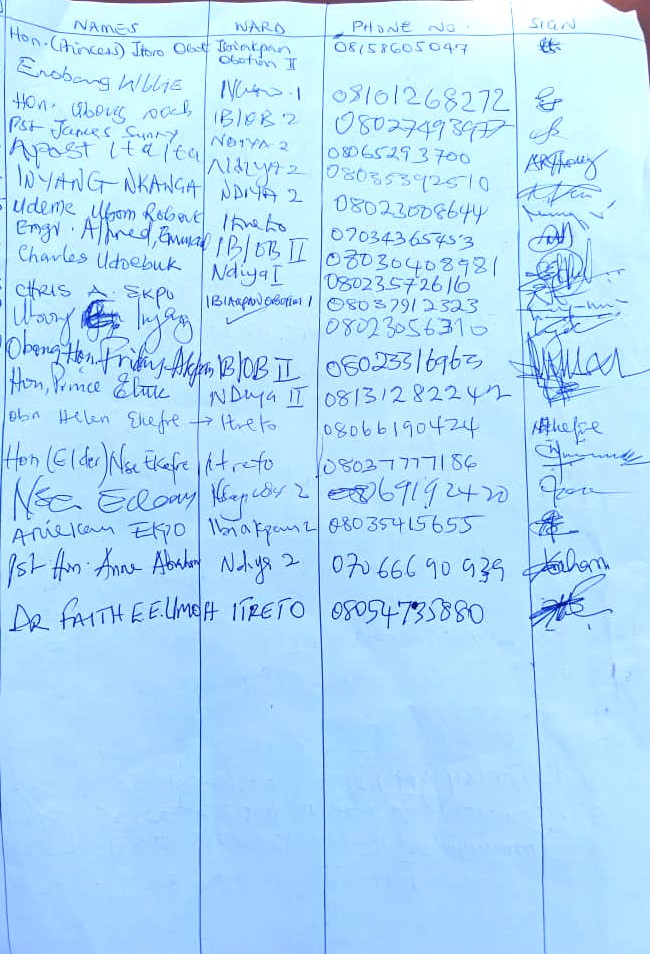 NAMES WARD PHONE NO. SIGN
Hon. (Princess) Itoro Obot Ibiakpan Obotim II 08158605047
Enobong Willie 1 08101268272
Hon. Ubong IB/OB 2 08027493977
Pst James Sunny NDIYA 2 08065293700
Apost Ita Ita Ndiya 2 08035392510
INYANG NKANGA NDIYA 2 08023008644
Udeme Ubom Robert Itreto 07034365453
Engr. Alfred, IB/OB II 08030408981
Charles Udoebuk Ndiya I 08023572616
CHRIS A. EKPO IBIAKPAN OBOTIM 1 08037912323
Inyang 08023056310
Obong Hon. Friday Akpan IB/OB II 08023316963
Hon, Prince Etuk NDiya II 08131282242
Obn Helen Ekefre → Itreto 08066190424
Hon (Elder) Nse Ekefre Itreto 08037777186
Nse 2 8069192420
Aniekan EKPO Ibiakpan 2 08035415655
Pst Hon. Anne Abraham Ndiya 2 07066690939
DR FAITH E.E. UMOH ITRETO 08054735880